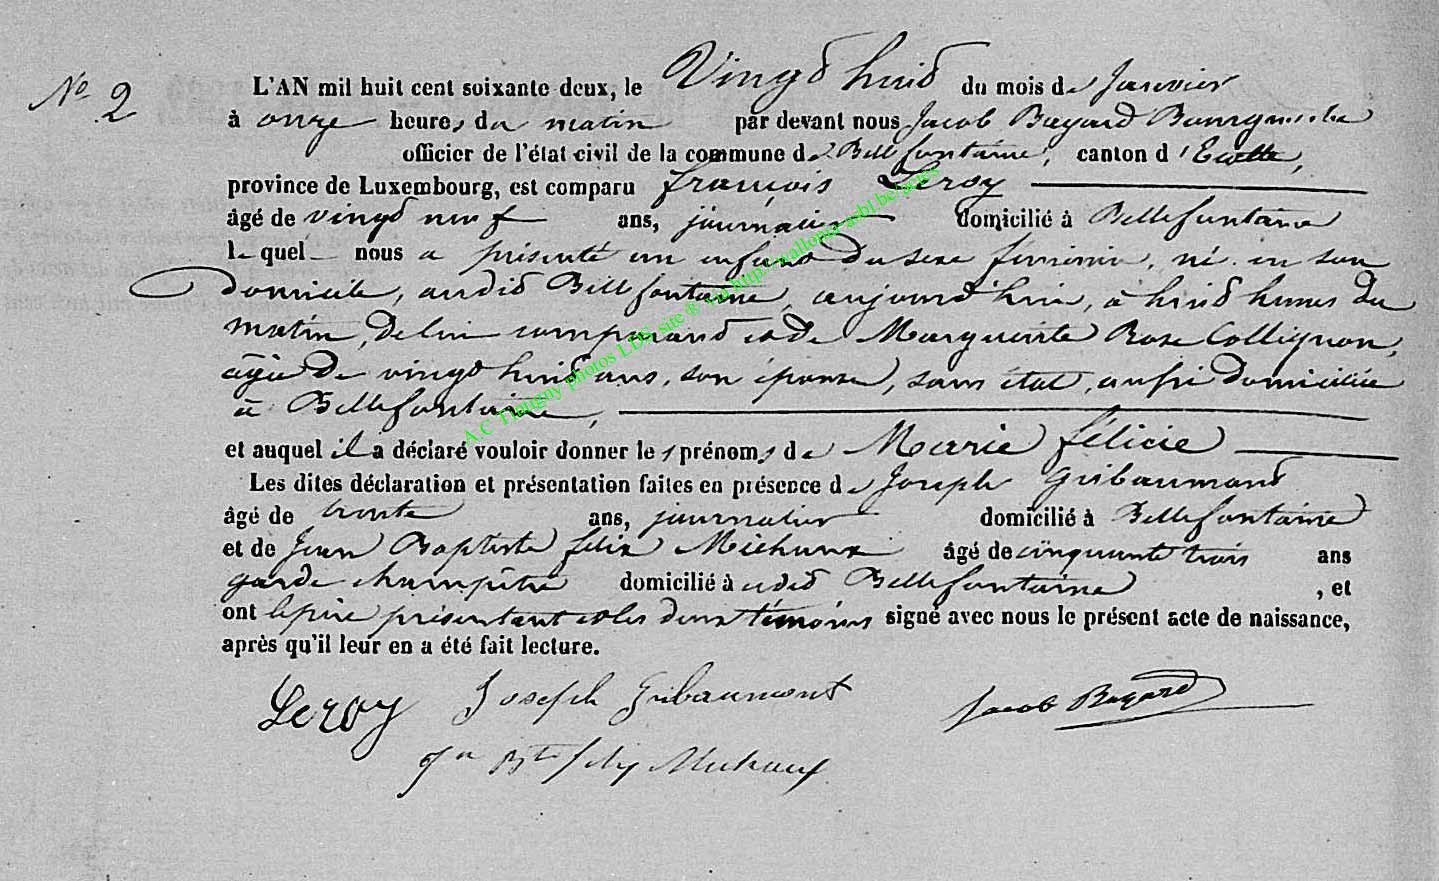 N° 2
L'AN mil huit cent soixante deux, le Vingt huit du mois de Janvier
à onze heures du matin par devant nous Jacob Bayard Bourgmestre
officier de l'état civil de la commune de Bellefontaine, canton d'Etalle,
province de Luxembourg, est comparu françois Leroy
âgé de vingt neuf ans, journalier domicilié à Bellefontaine
lequel nous a présenté un enfant du sexe féminin, né en son
domicile, audit Bellefontaine, aujourd'hui, à huit heures du
matin, de lui comparant et de Marguerite Rose Collignon,
âgée de vingt huit ans, son épouse, sans état, aussi domiciliée
à Bellefontaine,
et auquel il a déclaré vouloir donner les prénoms de Marie félicie
Les dites déclaration et présentation faites en présence de Joseph Gribaumont
âgé de trente ans, journalier domicilié à Bellefontaine
et de Jean Baptiste félix Michaux âgé de cinquante trois ans
garde champêtre domicilié à udit Bellefontaine, et
ont le père présentant et les deux témoins signé avec nous le présent acte de naissance,
après qu'il leur en a été fait lecture.
Leroy Joseph Gribaumont Jacob Bayard
Jn Bte felix Michaux
A.C Tintigny photos LDS, site ® via http://wallonia-asbl.be/actes